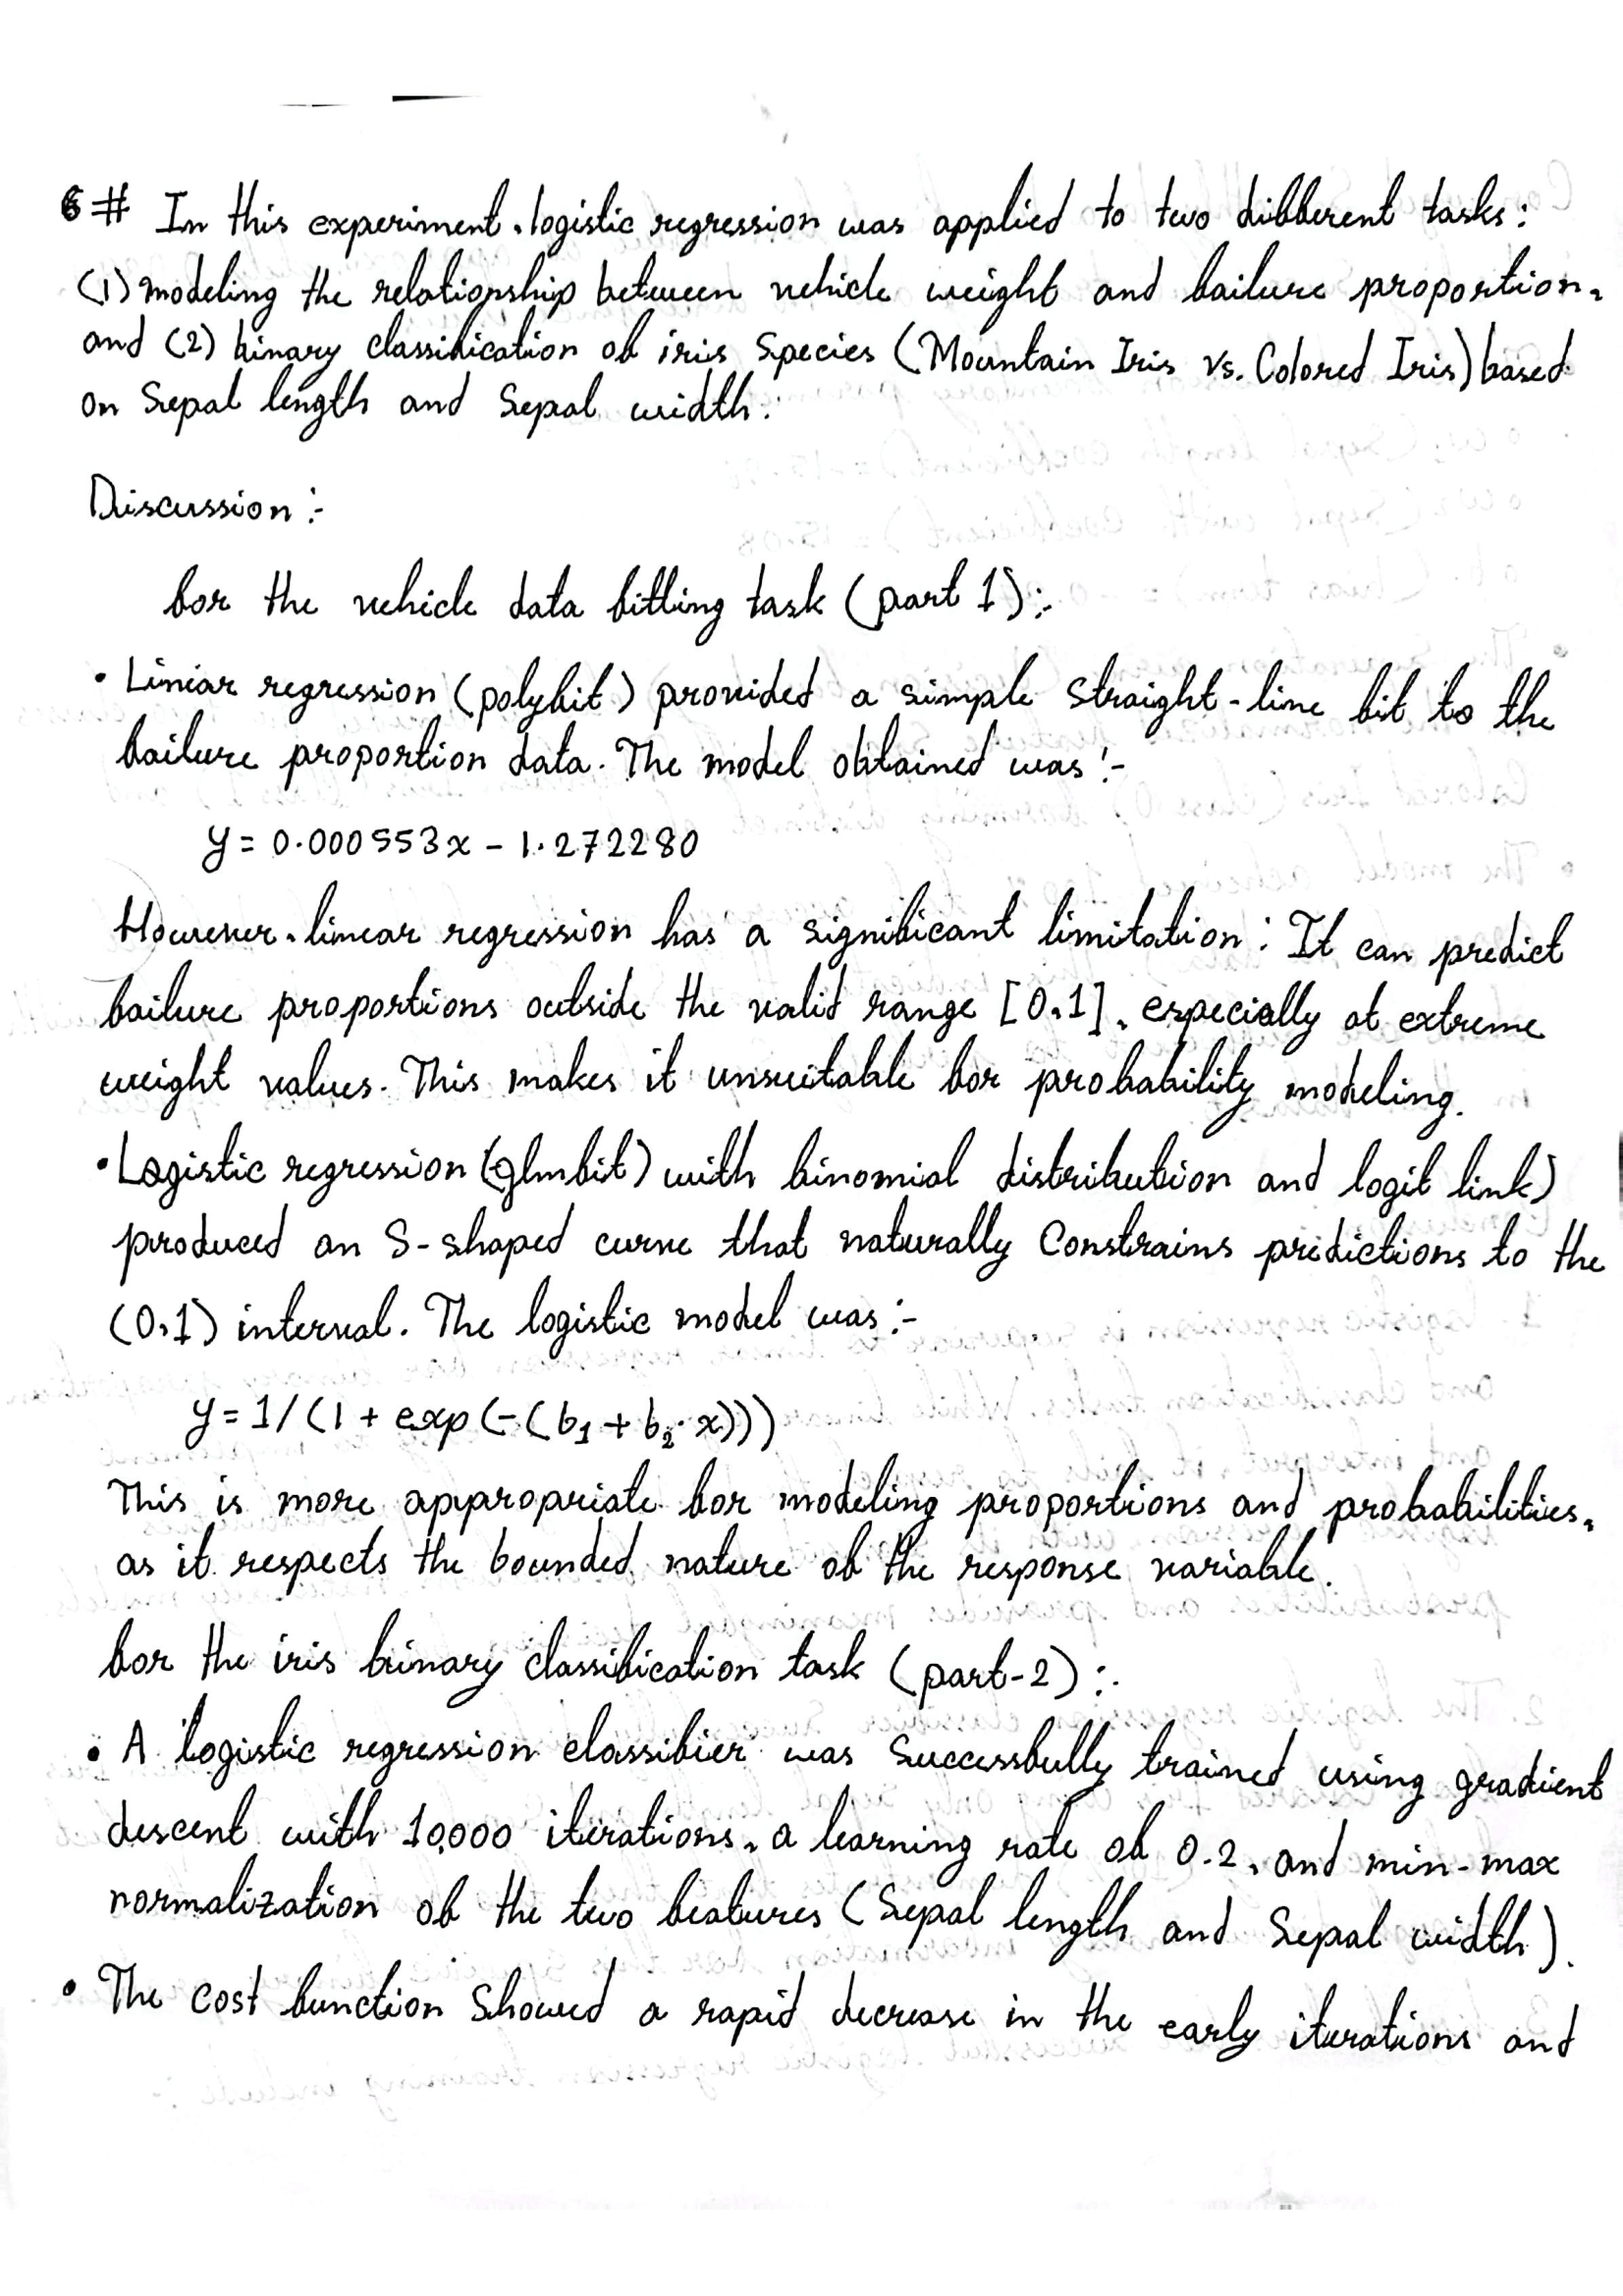 6# In this experiment, logistic regression was applied to two different tasks:
(1) modeling the relationship between vehicle weight and failure proportion,
and (2) binary classification of iris Species (Mountain Iris vs. Colored Iris) based
on Sepal length and Sepal width.
Discussion :-
for the vehicle data fitting task (part 1):-
• Liniar regression (polyfit) provided a simple straight-line fit to the
failure proportion data. The model obtained was :-
y = 0.000553x - 1.272280
However, linear regression has a significant limitation: It can predict
failure proportions outside the valid range [0,1], especially at extreme
weight values. This makes it unsuitable for probability modeling.
• Logistic regression (glmfit) with binomial distribution and logit link)
produced an S-shaped curve that naturally Constrains predictions to the
(0,1) interval. The logistic model was :-
y = 1/(1 + exp(-(b₁ + b₂·x)))
This is more appropriate for modeling proportions and probabilities,
as it respects the bounded nature of the response variable.
for the iris binary classification task (part-2):-
• A logistic regression classifier was Successfully trained using gradient
descent with 10,000 iterations, a learning rate of 0.2, and min-max
normalization of the two features (Sepal length and Sepal width).
• The cost function Showed a rapid decrease in the early iterations and